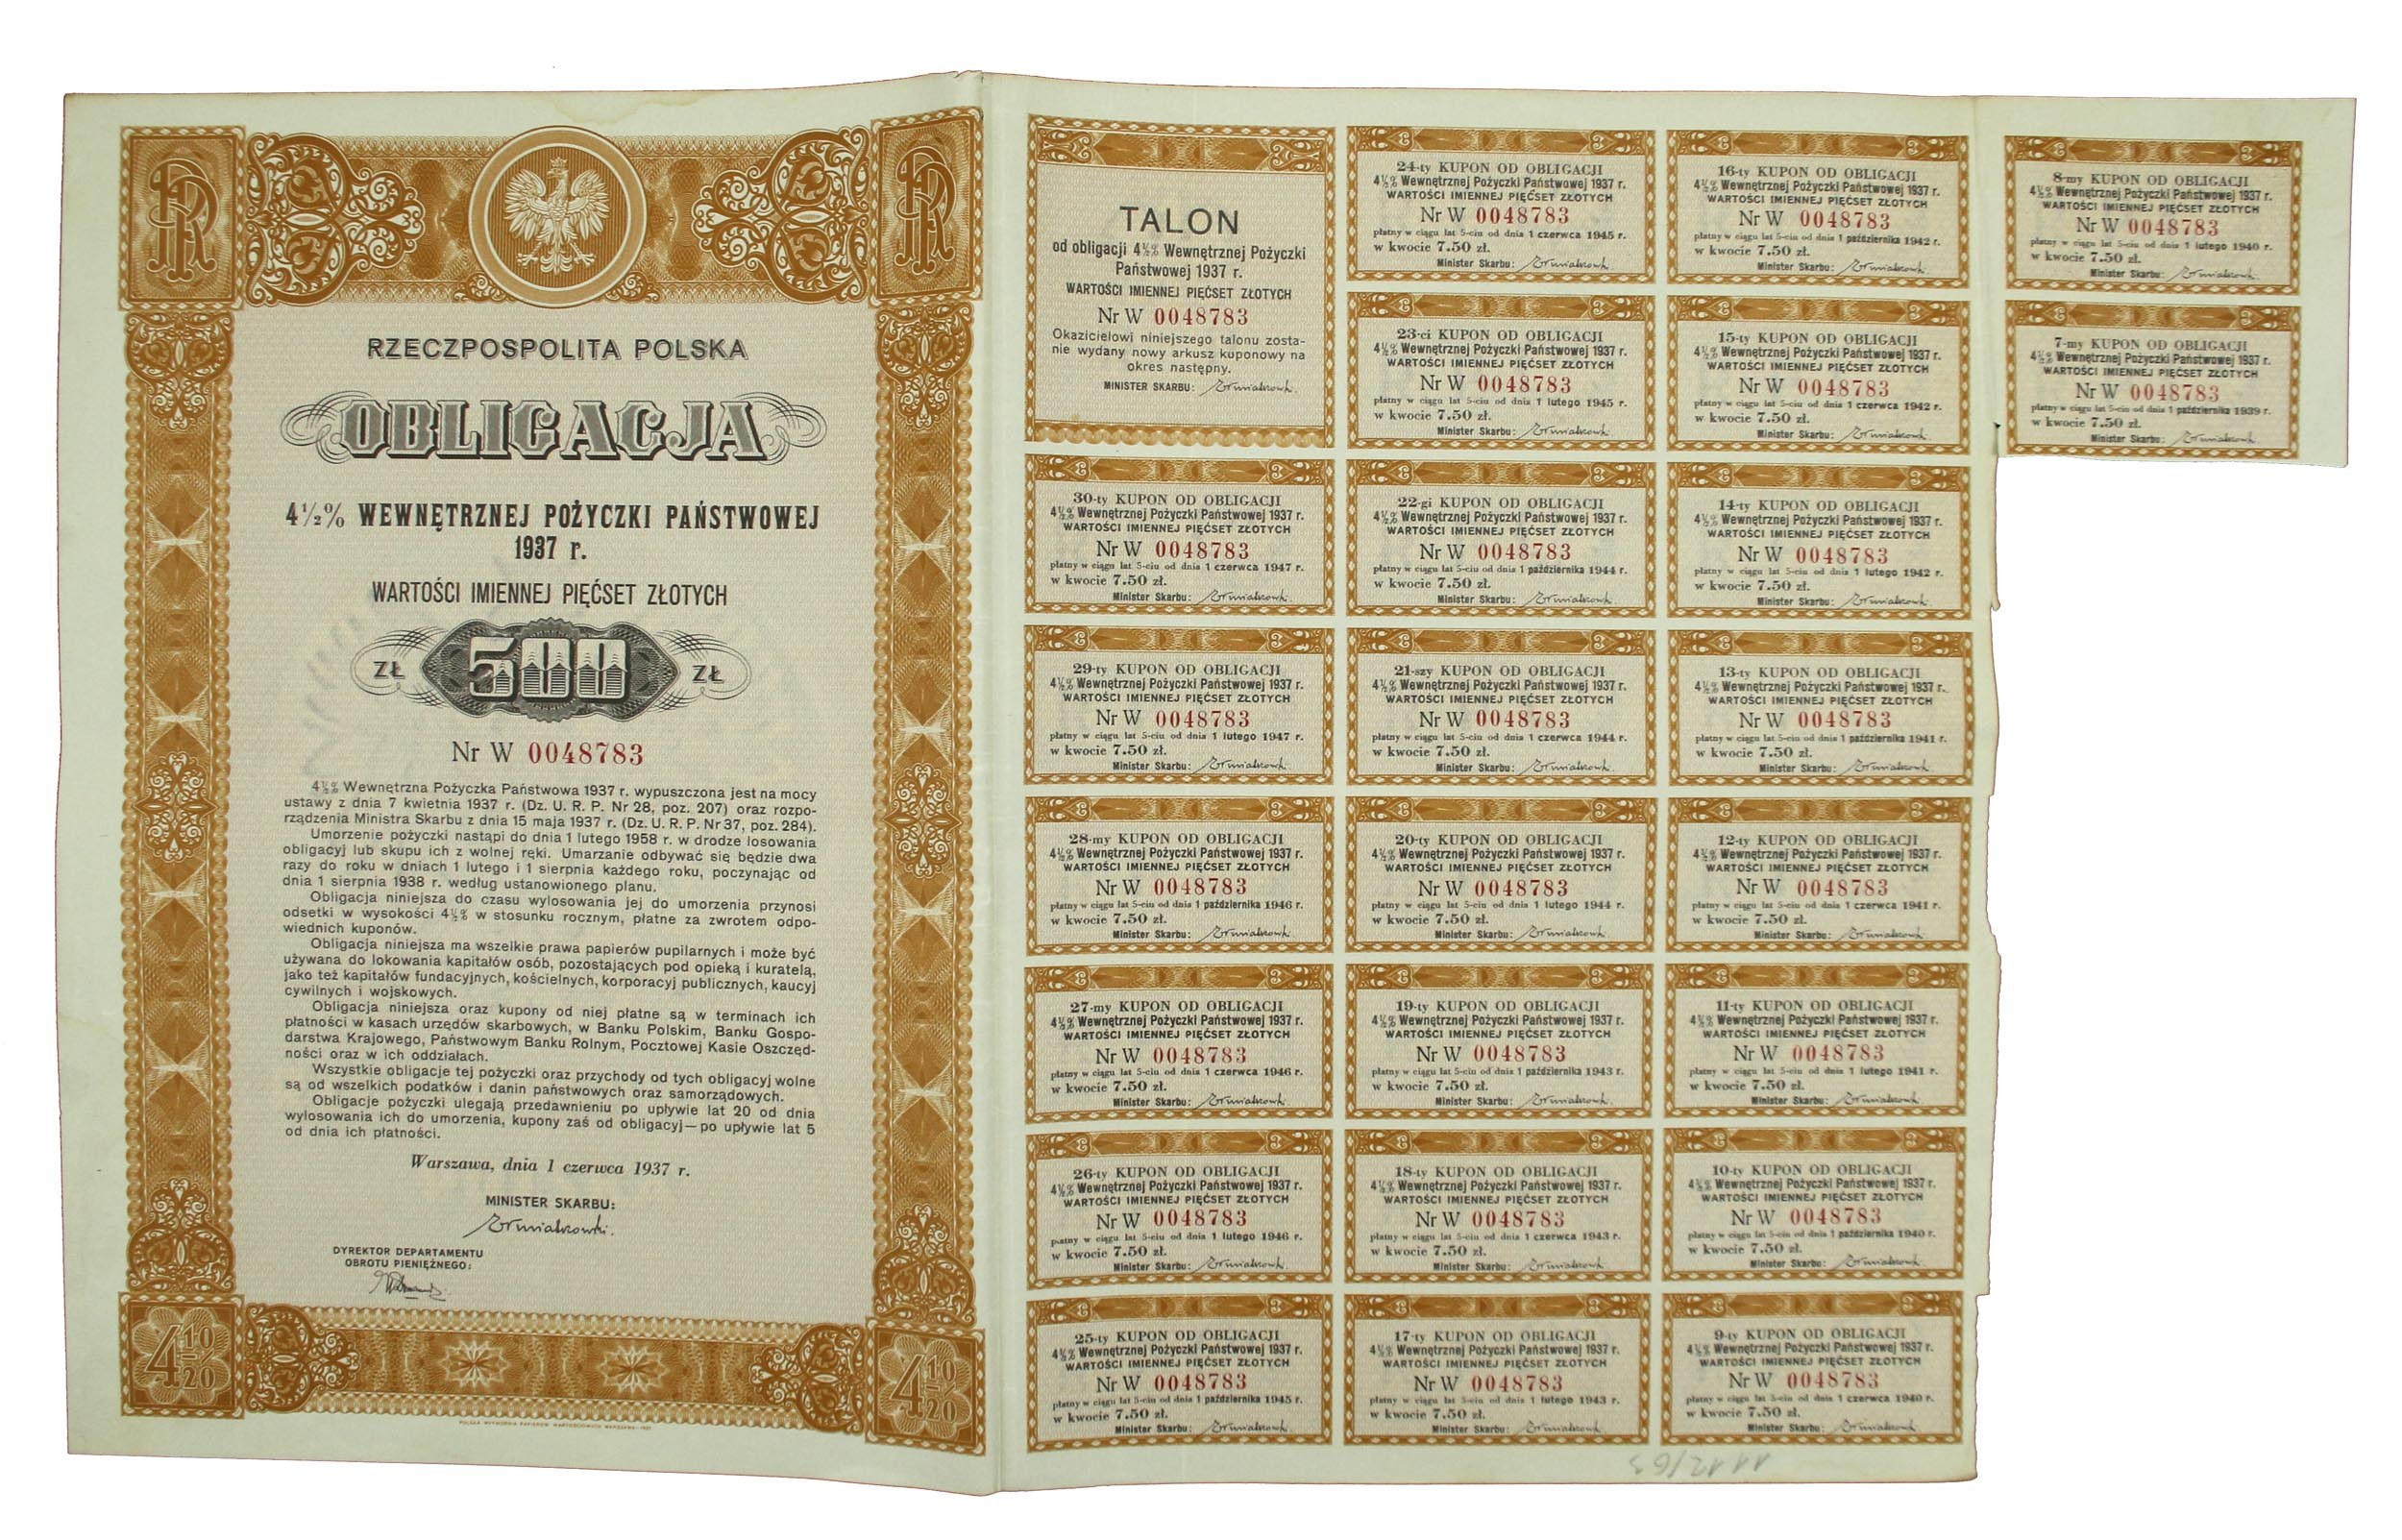 RP
RP
RZECZPOSPOLITA POLSKA
OBLIGACJA
4½% WEWNĘTRZNEJ POŻYCZKI PAŃSTWOWEJ
1937 r.
WARTOŚCI IMIENNEJ PIĘĆSET ZŁOTYCH
ZŁ 500 ZŁ
Nr W 0048783
4½% Wewnętrzna Pożyczka Państwowa 1937 r. wypuszczona jest na mocy
ustawy z dnia 7 kwietnia 1937 r. (Dz. U. R. P. Nr 28, poz. 207) oraz rozpo-
rządzenia Ministra Skarbu z dnia 15 maja 1937 r. (Dz. U. R. P. Nr 37, poz. 284).
Umorzenie pożyczki nastąpi do dnia 1 lutego 1958 r. w drodze losowania
obligacyj lub skupu ich z wolnej ręki. Umarzanie odbywać się będzie dwa
razy do roku w dniach 1 lutego i 1 sierpnia każdego roku, poczynając od
dnia 1 sierpnia 1938 r. według ustanowionego planu.
Obligacja niniejsza do czasu wylosowania jej do umorzenia przynosi
odsetki w wysokości 4½% w stosunku rocznym, płatne za zwrotem odpo-
wiednich kuponów.
Obligacja niniejsza ma wszelkie prawa papierów pupilarnych i może być
używana do lokowania kapitałów osób, pozostających pod opieką i kuratelą,
jako też kapitałów fundacyjnych, kościelnych, korporacyj publicznych, kaucyj
cywilnych i wojskowych.
Obligacja niniejsza oraz kupony od niej płatne są w terminach ich
płatności w kasach urzędów skarbowych, w Banku Polskim, Banku Gospo-
darstwa Krajowego, Państwowym Banku Rolnym, Pocztowej Kasie Oszczęd-
ności oraz w ich oddziałach.
Wszystkie obligacje tej pożyczki oraz przychody od tych obligacyj wolne
są od wszelkich podatków i danin państwowych oraz samorządowych.
Obligacje pożyczki ulegają przedawnieniu po upływie lat 20 od dnia
wylosowania ich do umorzenia, kupony zaś od obligacyj—po upływie lat 5
od dnia ich płatności.
Warszawa, dnia 1 czerwca 1937 r.
MINISTER SKARBU:
DYREKTOR DEPARTAMENTU
OBROTU PIENIĘŻNEGO:
4 10/20 %
4 10/20 %
POLSKA WYTWÓRNIA PAPIERÓW WARTOŚCIOWYCH WARSZAWA
TALON
od obligacji 4½% Wewnętrznej Pożyczki
Państwowej 1937 r.
WARTOŚCI IMIENNEJ PIĘĆSET ZŁOTYCH
Nr W 0048783
Okazicielowi niniejszego talonu zosta-
nie wydany nowy arkusz kuponowy na
okres następny.
MINISTER SKARBU:
30-ty KUPON OD OBLIGACJI
4½% Wewnętrznej Pożyczki Państwowej 1937 r.
WARTOŚCI IMIENNEJ PIĘĆSET ZŁOTYCH
Nr W 0048783
płatny w ciągu lat 5-ciu od dnia 1 czerwca 1947 r.
w kwocie 7.50 zł.
Minister Skarbu:
29-ty KUPON OD OBLIGACJI
4½% Wewnętrznej Pożyczki Państwowej 1937 r.
WARTOŚCI IMIENNEJ PIĘĆSET ZŁOTYCH
Nr W 0048783
płatny w ciągu lat 5-ciu od dnia 1 lutego 1947 r.
w kwocie 7.50 zł.
Minister Skarbu:
28-my KUPON OD OBLIGACJI
4½% Wewnętrznej Pożyczki Państwowej 1937 r.
WARTOŚCI IMIENNEJ PIĘĆSET ZŁOTYCH
Nr W 0048783
płatny w ciągu lat 5-ciu od dnia 1 października 1946 r.
w kwocie 7.50 zł.
Minister Skarbu:
27-my KUPON OD OBLIGACJI
4½% Wewnętrznej Pożyczki Państwowej 1937 r.
WARTOŚCI IMIENNEJ PIĘĆSET ZŁOTYCH
Nr W 0048783
płatny w ciągu lat 5-ciu od dnia 1 czerwca 1946 r.
w kwocie 7.50 zł.
Minister Skarbu:
26-ty KUPON OD OBLIGACJI
4½% Wewnętrznej Pożyczki Państwowej 1937 r.
WARTOŚCI IMIENNEJ PIĘĆSET ZŁOTYCH
Nr W 0048783
płatny w ciągu lat 5-ciu od dnia 1 lutego 1946 r.
w kwocie 7.50 zł.
Minister Skarbu:
25-ty KUPON OD OBLIGACJI
4½% Wewnętrznej Pożyczki Państwowej 1937 r.
WARTOŚCI IMIENNEJ PIĘĆSET ZŁOTYCH
Nr W 0048783
płatny w ciągu lat 5-ciu od dnia 1 października 1945 r.
w kwocie 7.50 zł.
Minister Skarbu:
24-ty KUPON OD OBLIGACJI
4½% Wewnętrznej Pożyczki Państwowej 1937 r.
WARTOŚCI IMIENNEJ PIĘĆSET ZŁOTYCH
Nr W 0048783
płatny w ciągu lat 5-ciu od dnia 1 czerwca 1945 r.
w kwocie 7.50 zł.
Minister Skarbu:
23-ci KUPON OD OBLIGACJI
4½% Wewnętrznej Pożyczki Państwowej 1937 r.
WARTOŚCI IMIENNEJ PIĘĆSET ZŁOTYCH
Nr W 0048783
płatny w ciągu lat 5-ciu od dnia 1 lutego 1945 r.
w kwocie 7.50 zł.
Minister Skarbu:
22-gi KUPON OD OBLIGACJI
4½% Wewnętrznej Pożyczki Państwowej 1937 r.
WARTOŚCI IMIENNEJ PIĘĆSET ZŁOTYCH
Nr W 0048783
płatny w ciągu lat 5-ciu od dnia 1 października 1944 r.
w kwocie 7.50 zł.
Minister Skarbu:
21-szy KUPON OD OBLIGACJI
4½% Wewnętrznej Pożyczki Państwowej 1937 r.
WARTOŚCI IMIENNEJ PIĘĆSET ZŁOTYCH
Nr W 0048783
płatny w ciągu lat 5-ciu od dnia 1 czerwca 1944 r.
w kwocie 7.50 zł.
Minister Skarbu:
20-ty KUPON OD OBLIGACJI
4½% Wewnętrznej Pożyczki Państwowej 1937 r.
WARTOŚCI IMIENNEJ PIĘĆSET ZŁOTYCH
Nr W 0048783
płatny w ciągu lat 5-ciu od dnia 1 lutego 1944 r.
w kwocie 7.50 zł.
Minister Skarbu:
19-ty KUPON OD OBLIGACJI
4½% Wewnętrznej Pożyczki Państwowej 1937 r.
WARTOŚCI IMIENNEJ PIĘĆSET ZŁOTYCH
Nr W 0048783
płatny w ciągu lat 5-ciu od dnia 1 października 1943 r.
w kwocie 7.50 zł.
Minister Skarbu:
18-ty KUPON OD OBLIGACJI
4½% Wewnętrznej Pożyczki Państwowej 1937 r.
WARTOŚCI IMIENNEJ PIĘĆSET ZŁOTYCH
Nr W 0048783
płatny w ciągu lat 5-ciu od dnia 1 czerwca 1943 r.
w kwocie 7.50 zł.
Minister Skarbu:
17-ty KUPON OD OBLIGACJI
4½% Wewnętrznej Pożyczki Państwowej 1937 r.
WARTOŚCI IMIENNEJ PIĘĆSET ZŁOTYCH
Nr W 0048783
płatny w ciągu lat 5-ciu od dnia 1 lutego 1943 r.
w kwocie 7.50 zł.
Minister Skarbu:
16-ty KUPON OD OBLIGACJI
4½% Wewnętrznej Pożyczki Państwowej 1937 r.
WARTOŚCI IMIENNEJ PIĘĆSET ZŁOTYCH
Nr W 0048783
płatny w ciągu lat 5-ciu od dnia 1 października 1942 r.
w kwocie 7.50 zł.
Minister Skarbu:
15-ty KUPON OD OBLIGACJI
4½% Wewnętrznej Pożyczki Państwowej 1937 r.
WARTOŚCI IMIENNEJ PIĘĆSET ZŁOTYCH
Nr W 0048783
płatny w ciągu lat 5-ciu od dnia 1 czerwca 1942 r.
w kwocie 7.50 zł.
Minister Skarbu:
14-ty KUPON OD OBLIGACJI
4½% Wewnętrznej Pożyczki Państwowej 1937 r.
WARTOŚCI IMIENNEJ PIĘĆSET ZŁOTYCH
Nr W 0048783
płatny w ciągu lat 5-ciu od dnia 1 lutego 1942 r.
w kwocie 7.50 zł.
Minister Skarbu:
13-ty KUPON OD OBLIGACJI
4½% Wewnętrznej Pożyczki Państwowej 1937 r.
WARTOŚCI IMIENNEJ PIĘĆSET ZŁOTYCH
Nr W 0048783
płatny w ciągu lat 5-ciu od dnia 1 października 1941 r.
w kwocie 7.50 zł.
Minister Skarbu:
12-ty KUPON OD OBLIGACJI
4½% Wewnętrznej Pożyczki Państwowej 1937 r.
WARTOŚCI IMIENNEJ PIĘĆSET ZŁOTYCH
Nr W 0048783
płatny w ciągu lat 5-ciu od dnia 1 czerwca 1941 r.
w kwocie 7.50 zł.
Minister Skarbu:
11-ty KUPON OD OBLIGACJI
4½% Wewnętrznej Pożyczki Państwowej 1937 r.
WARTOŚCI IMIENNEJ PIĘĆSET ZŁOTYCH
Nr W 0048783
płatny w ciągu lat 5-ciu od dnia 1 lutego 1941 r.
w kwocie 7.50 zł.
Minister Skarbu:
10-ty KUPON OD OBLIGACJI
4½% Wewnętrznej Pożyczki Państwowej 1937 r.
WARTOŚCI IMIENNEJ PIĘĆSET ZŁOTYCH
Nr W 0048783
płatny w ciągu lat 5-ciu od dnia 1 października 1940 r.
w kwocie 7.50 zł.
Minister Skarbu:
9-ty KUPON OD OBLIGACJI
4½% Wewnętrznej Pożyczki Państwowej 1937 r.
WARTOŚCI IMIENNEJ PIĘĆSET ZŁOTYCH
Nr W 0048783
płatny w ciągu lat 5-ciu od dnia 1 czerwca 1940 r.
w kwocie 7.50 zł.
Minister Skarbu:
8-my KUPON OD OBLIGACJI
4½% Wewnętrznej Pożyczki Państwowej 1937 r.
WARTOŚCI IMIENNEJ PIĘĆSET ZŁOTYCH
Nr W 0048783
płatny w ciągu lat 5-ciu od dnia 1 lutego 1940 r.
w kwocie 7.50 zł.
Minister Skarbu:
7-my KUPON OD OBLIGACJI
4½% Wewnętrznej Pożyczki Państwowej 1937 r.
WARTOŚCI IMIENNEJ PIĘĆSET ZŁOTYCH
Nr W 0048783
płatny w ciągu lat 5-ciu od dnia 1 października 1939 r.
w kwocie 7.50 zł.
Minister Skarbu:
1112/63